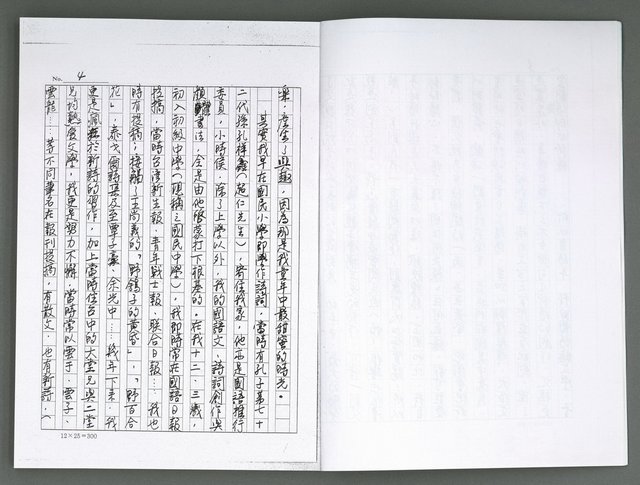 No. 4
樂，產生了興趣，因為那是我童年中最甜蜜的時光。
其實我早在國民小學即學作詩詞，當時有孔子第七十
二代孫孔祥鑫（苑仁先生），寄住我家，他亦是國語推行
委員，小時候，除了上學以外，我的國語文、詩詞創作與
顏書法，全是由他啟蒙打下根基的。在我十二、三歲，
初入初級中學（現稱之國民中學），我即時常在國語日報
投搞，當時台灣新生報、青年戰士報、聯合日報……我也
時有投搞，接觸了王尚義的「野鴿子的黃昏」，「野百合
花」，泰戈爾詩集及至覃子豪、余光中……幾年下來，我
更是瘋於新詩的習作，加上當時住台中的大堂兄與二堂
兄均熱愛文學，我更是努力不懈，當時常以雲于、雲子、
雲龍……等不同筆名在報刊投搞，有散文，也有新詩，（
12×25=300